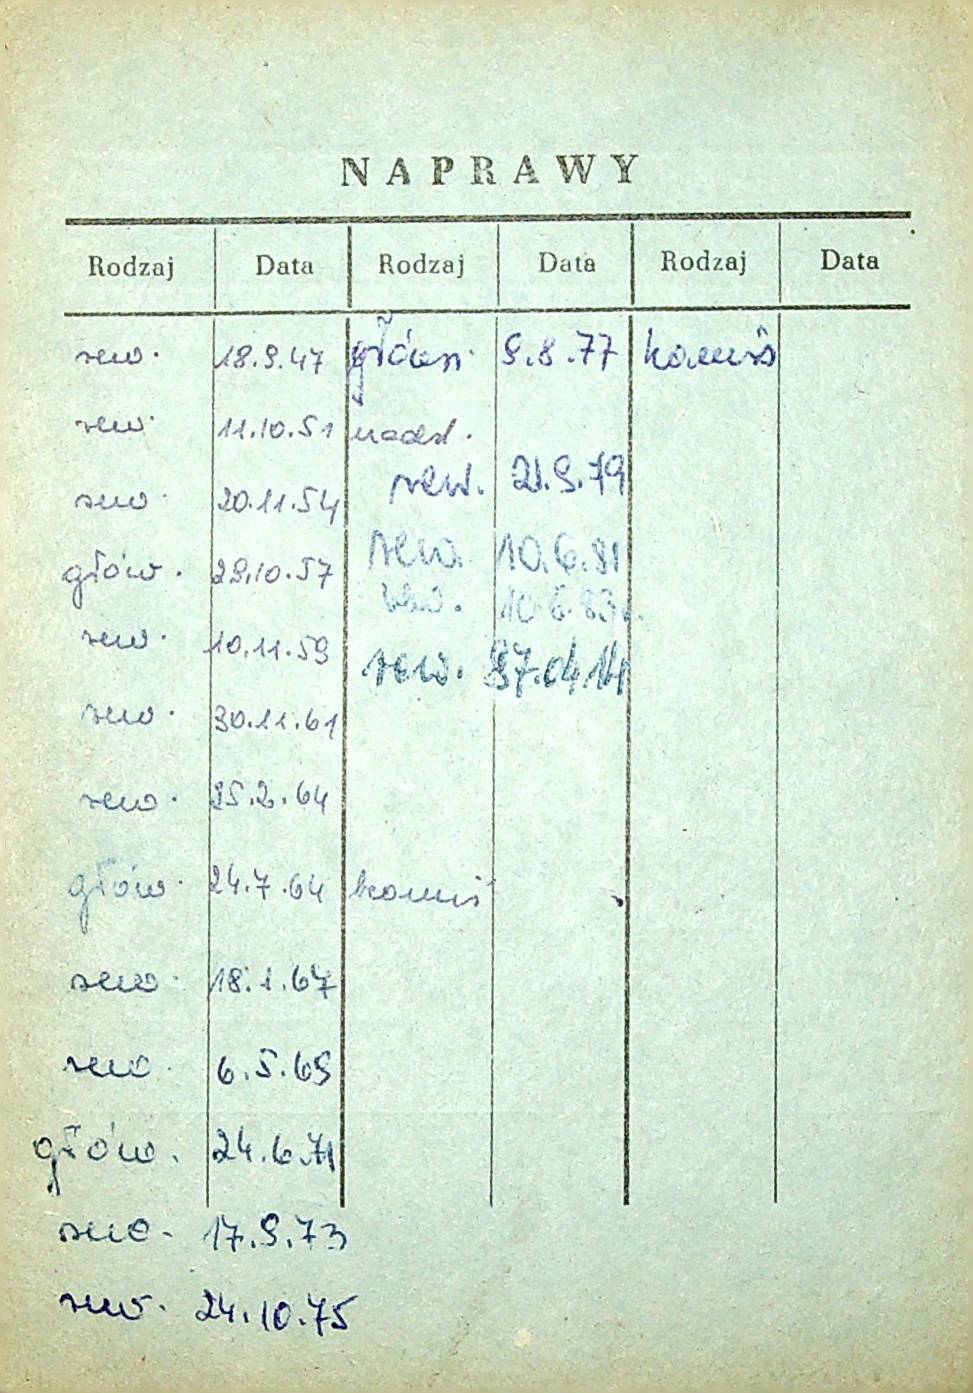 NAPRAWY
Rodzaj Data Rodzaj Data Rodzaj Data
rew. 18.9.47 główn. 9.8.77
rew. 11.10.51
rew. 21.9.79
rew. 20.11.54
rew. 10.6.81
głów. 29.10.57
rew. 10.6.83
rew. 10.11.59
rew. 87.04.14
rew. 30.11.61
rew. 25.2.64
głów. 24.7.64
rew. 18.1.67
rew. 6.5.69
głów. 24.6.71
rew. 17.9.73
rew. 24.10.75